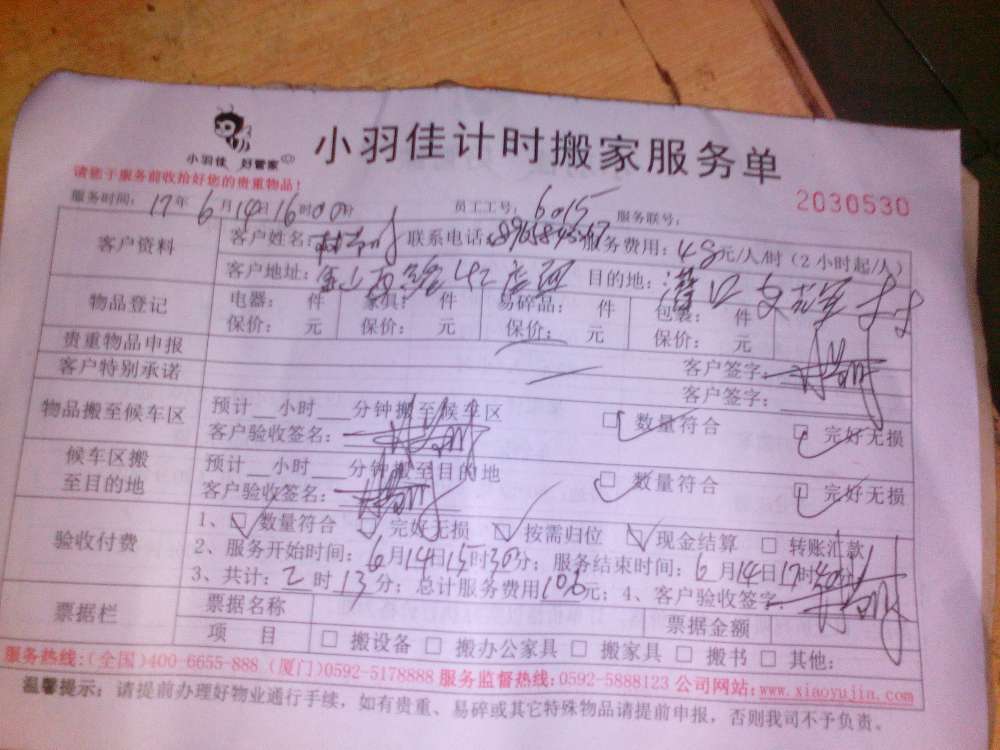 小羽佳 好管家
小羽佳计时搬家服务单
请您于服务前收给好您的贵重物品!
2030530
服务时间: 17年 6月 14日 16时00分 员工工号: 6015 服务联号:
客户资料
客户姓名: 联系电话: 服务费用: 48元/人/时 (2小时起/人)
客户地址: 金山西路 目的地: 灌口
物品登记
电器: 件 家具: 件 易碎品: 件 包装: 件
保价: 元 保价: 元 保价: 元 保价: 元
贵重物品申报 客户签字:
客户特别承诺 客户签字:
物品搬至候车区
预计__小时___分钟搬至候车区 数量符合 完好无损
客户验收签名:
候车区搬至目的地
预计__小时___分钟搬至目的地 数量符合 完好无损
客户验收签名:
验收付费
1、数量符合 完好无损 按需归位 现金结算 转账汇款
2、服务开始时间: 6月14日15时30分; 服务结束时间: 6月14日17时
3、共计: 2时13分; 总计服务费用106元; 4、客户验收签字
票据栏
票据名称 票据金额
项 目 搬设备 搬办公家具 搬家具 搬书 其他:
服务热线:(全国)400-6655-888 (厦门)0592-5178888 服务监督热线:0592-5888123 公司网站:www.xiaoyujin.com
温馨提示: 请提前办理好物业通行手续, 如有贵重、易碎或其它特殊物品请提前申报, 否则我司不予负责。